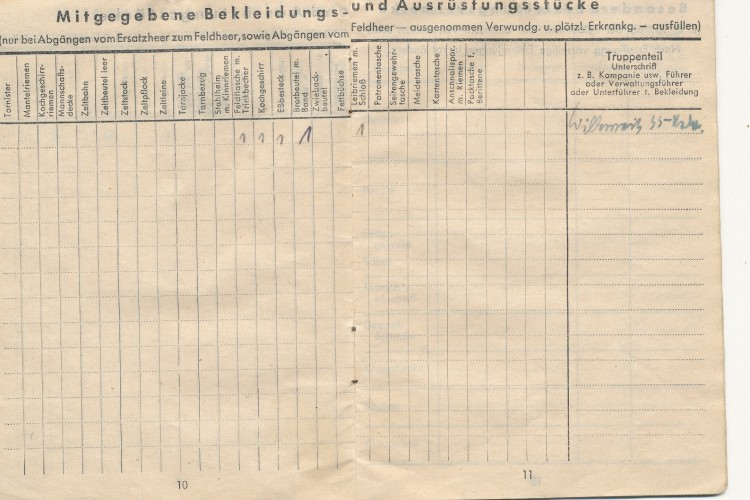 Mitgegebene Bekleidungs- und Ausrüstungsstücke
(nur bei Abgängen vom Ersatzheer zum Feldheer, sowie Abgängen vom Feldheer — ausgenommen Verwundg. u. plötzl. Erkrankg. — ausfüllen)
Tornister
Mantelriemen
Kochgeschirr-
riemen
Mannschafts-
decke
Zeltbahn
Zeltbeutel leer
Zeltstock
Zeltpflock
Zeltleine
Tarnjacke
Tarnbezug
Stahlhelm
m. Kinnriemen
Feldflasche m.
Trinkbecher
Kochgeschirr
Eßbesteck
Brotbeutel m.
Band
Zwieback-
beutel
Fettbüchse
Leibriemen m.
Schloß
Patronentasche
Seitengewehr-
tasche
Meldetasche
Kartentasche
Anschnallspor.
m. Riemen
Packtasche f.
Berittene
Truppenteil
Unterschrift
z. B. Kompanie usw. Führer
oder Verwaltungsführer
oder Unterführer f. Bekleidung
1 1 1 1 1
10
11